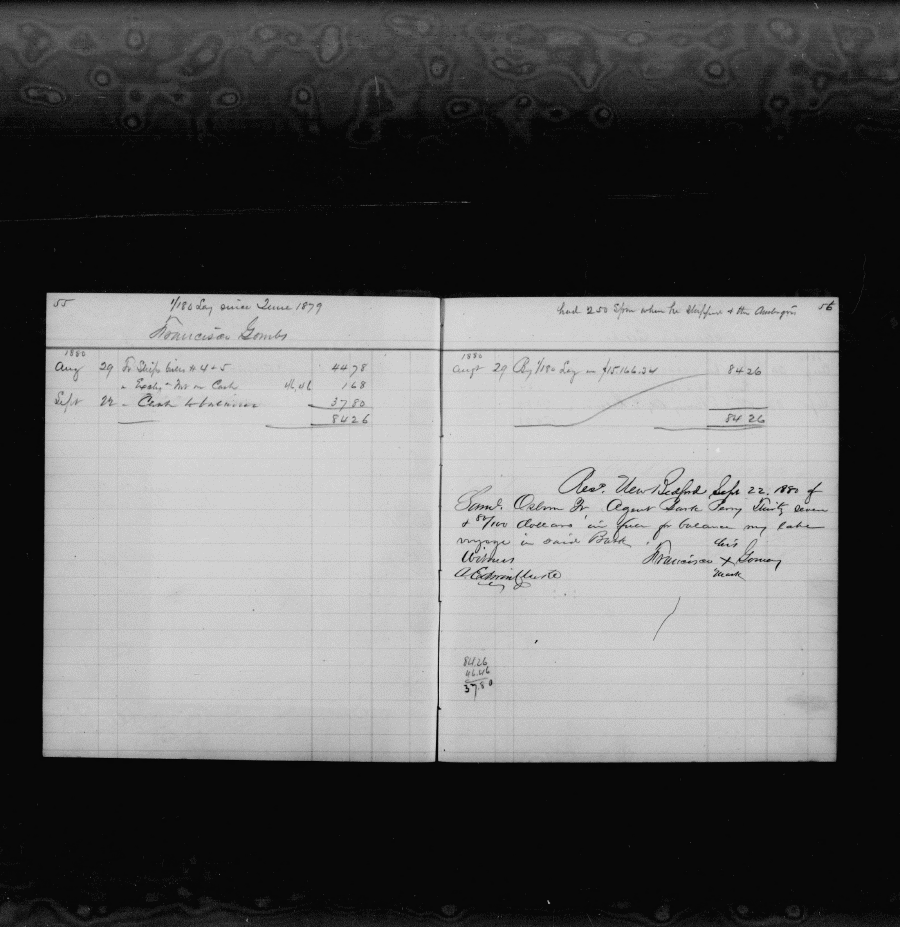 55
1/180 Lay since June 1879
Francisco Gombs
1880
Aug 29 To Ships bills # 4 & 5 44 78
" Exchg & Int on Cash 46,46 1 68
Sept 22 " Cash to balance 37 80
84 26
had 250 when he Shipped 56
1880
Augt 29 By 1/180 Lay on $15166.34 84 26
84 26
Recd. New Bedford Sept 22. 1880 of
Saml. Osborn Jr. Agent Bark Perry Thirty seven
& 80/100 dollars in full for balance my late
voyage in said Bark.
his
Witness Francisco X Gomes
mark
84.26
46.46
37.80